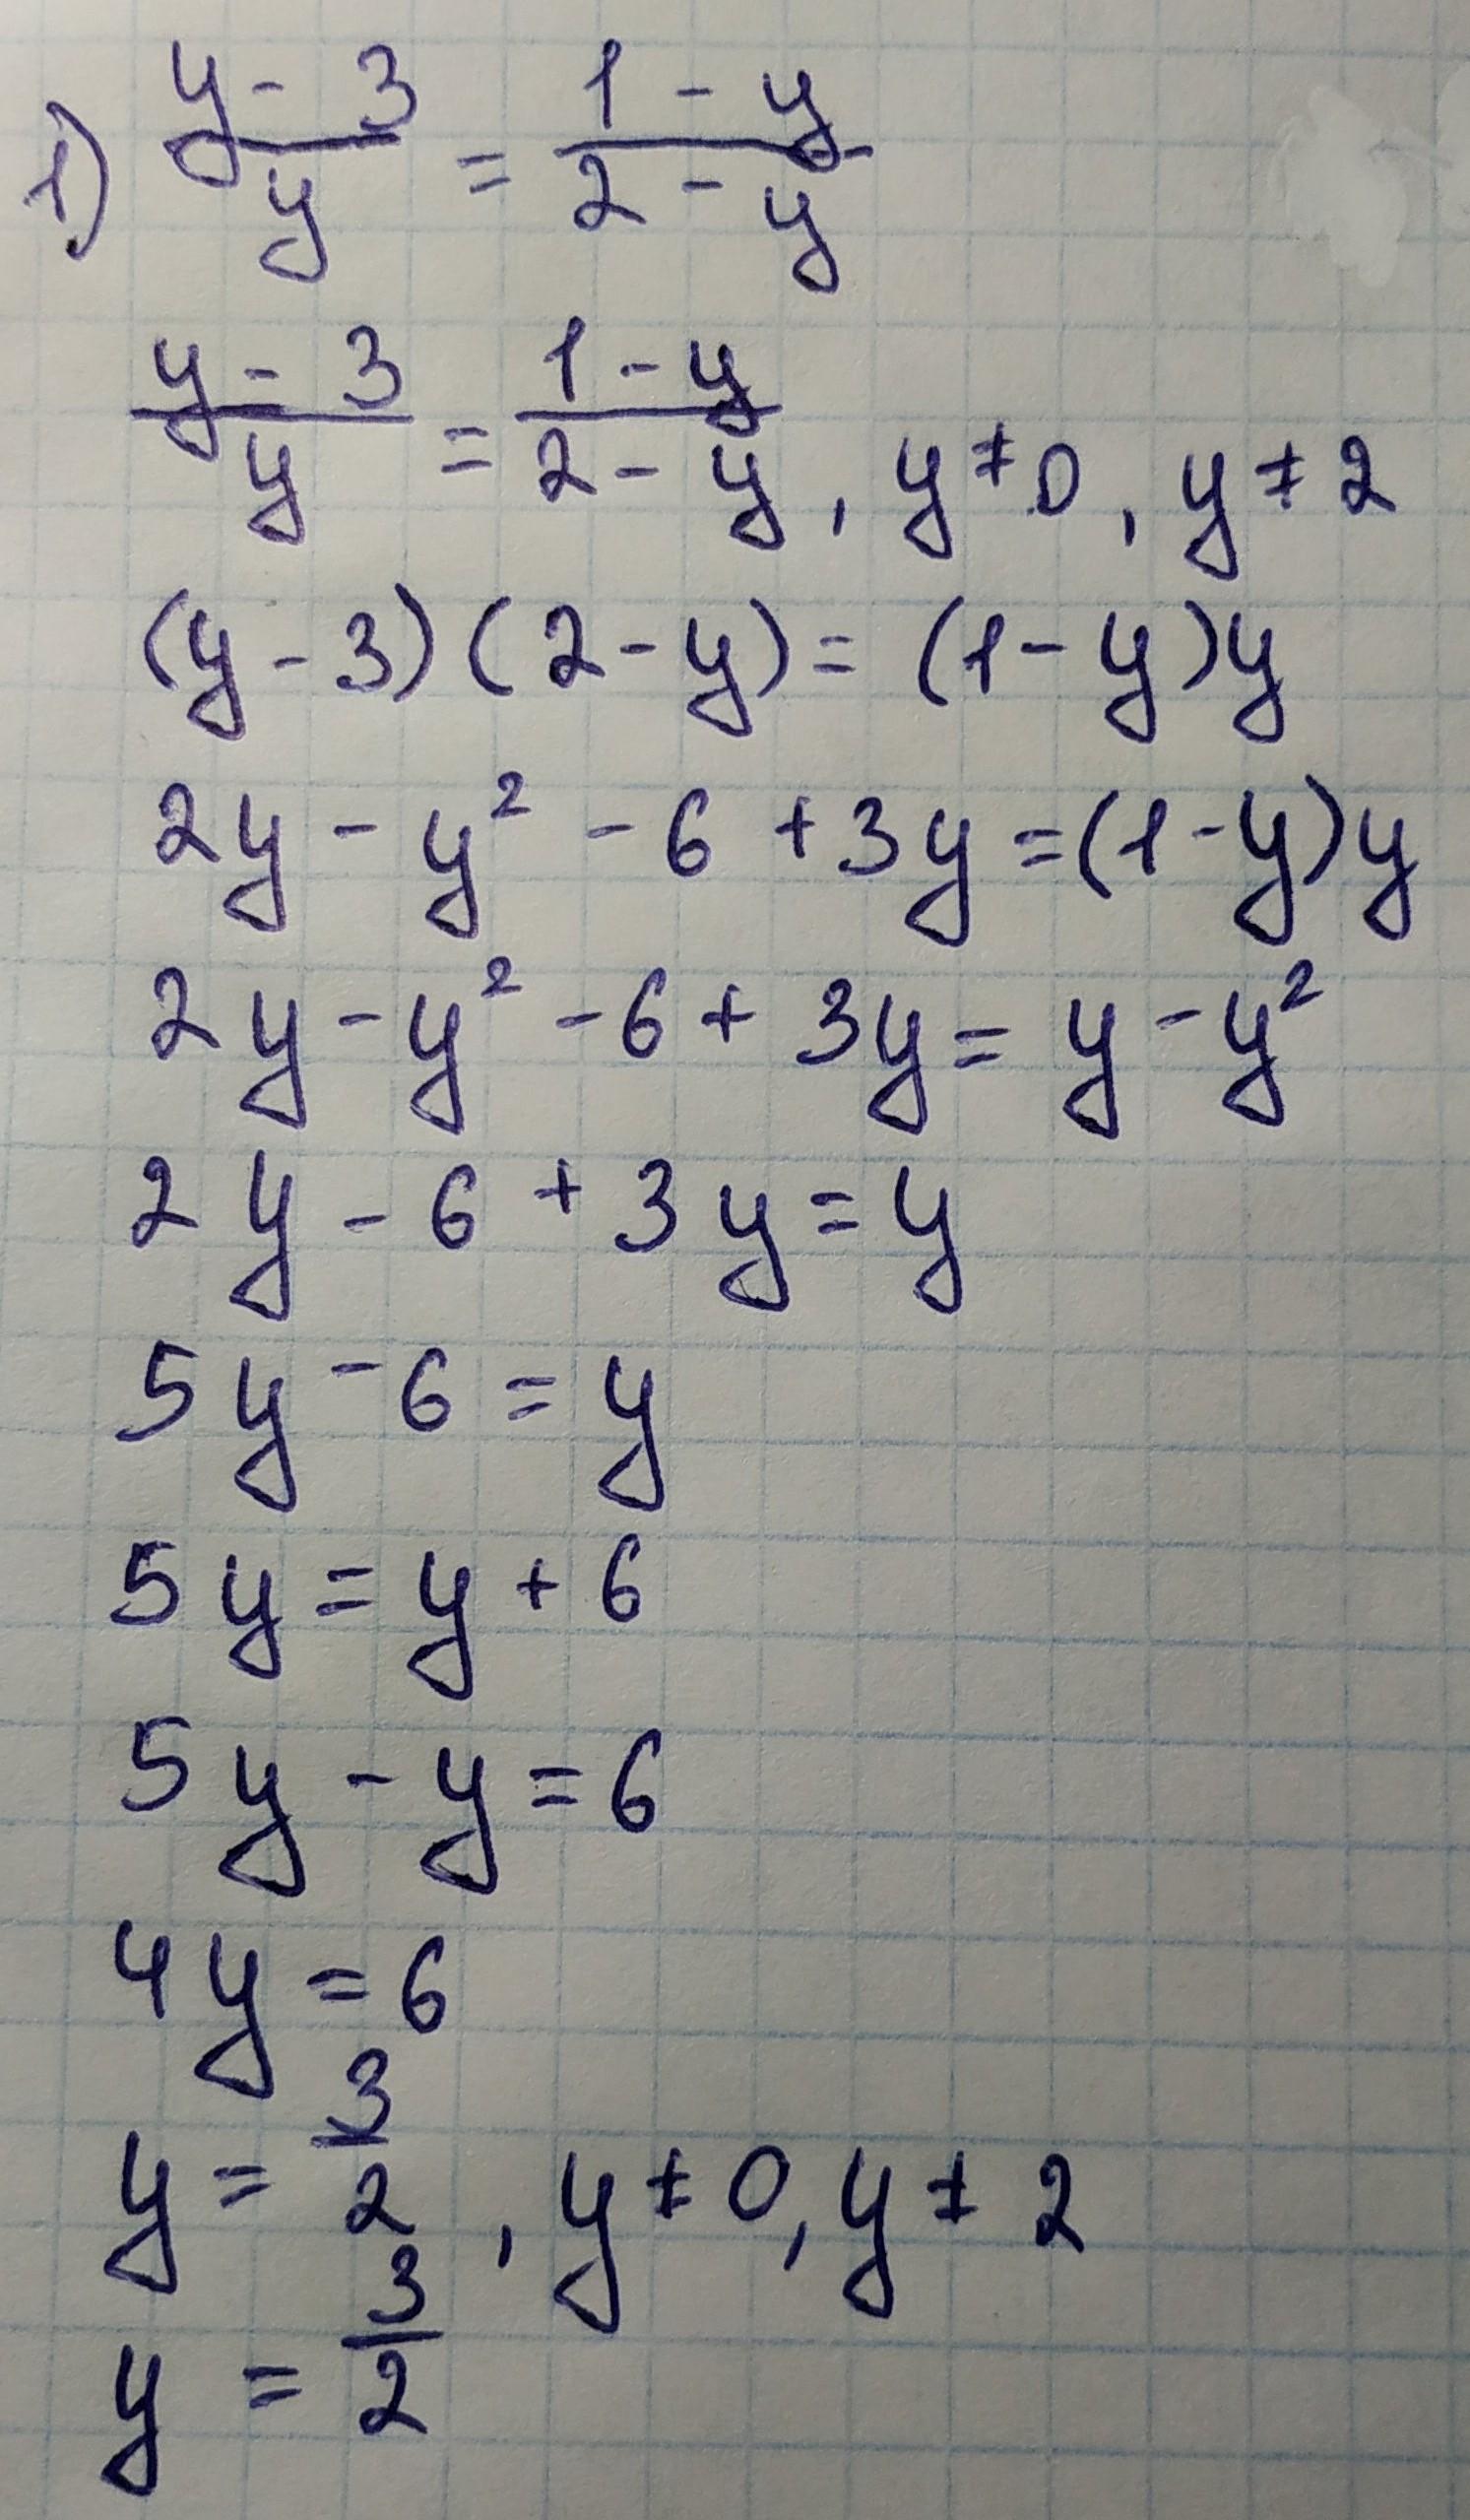 1) (y - 3)/y = (1 - y)/(2 - y)
(y - 3)/y = (1 - y)/(2 - y), y ≠ 0, y ≠ 2
(y - 3)(2 - y) = (1 - y)y
2y - y² - 6 + 3y = (1 - y)y
2y - y² - 6 + 3y = y - y²
2y - 6 + 3y = y
5y - 6 = y
5y = y + 6
5y - y = 6
4y = 6
y = 3/2, y ≠ 0, y ≠ 2
y = 3/2